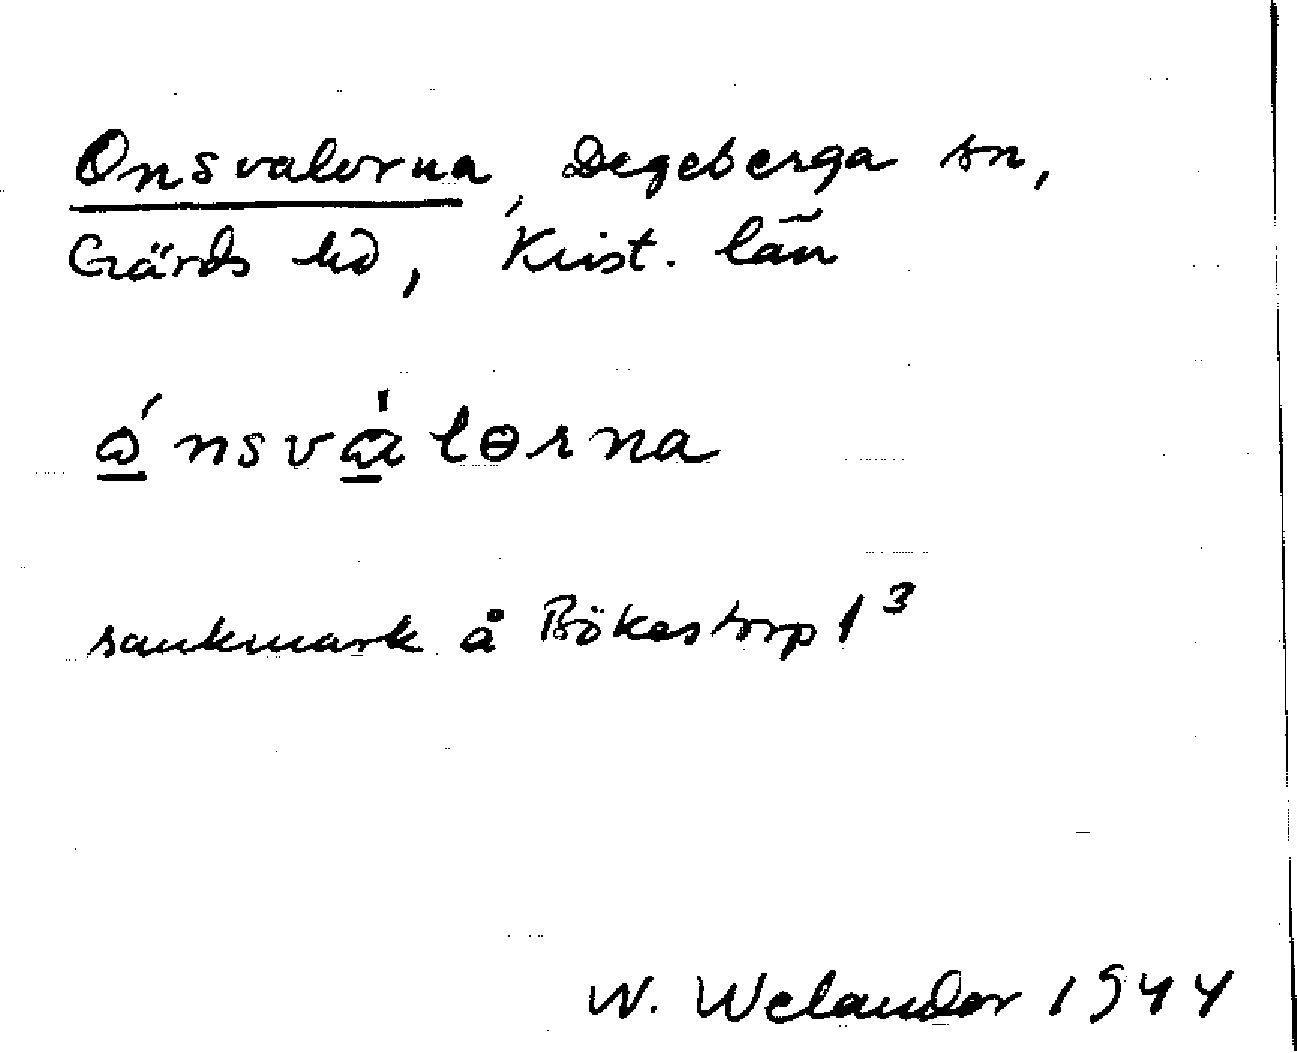 Onsvalorna, Degeberga sn,
Gärds hd, Krist. län
ánsvàlɵrna
sankmark å Bökestorp 1³
W. Welander 1944